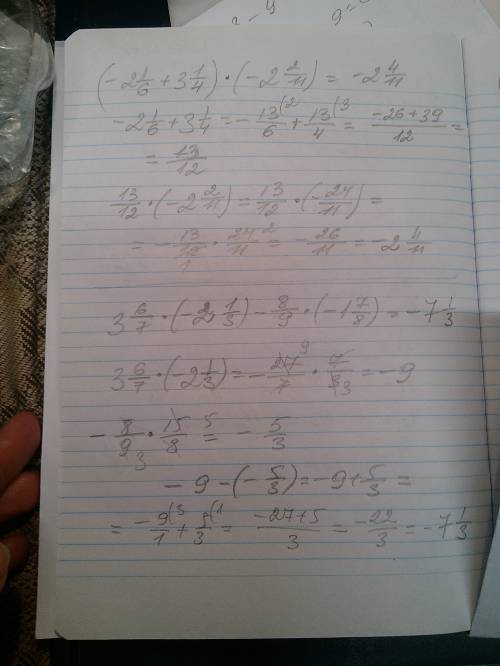 (-2 1/6 + 3 1/4) · (-2 2/11) = -2 4/11
-2 1/6 + 3 1/4 = -13/6 (2 + 13/4 (3 = (-26+39)/12 =
= 13/12
13/12 · (-2 2/11) = 13/12 · (-24/11) =
= -13/12 1 · 24/11 2 = -26/11 = -2 4/11
3 6/7 · (-2 1/3) - 8/9 · (-1 7/8) = -7 1/3
3 6/7 · (-2 1/3) = -27/7 9 · 7/3 = -9
-8/9 3 · 15/8 5 = -5/3
-9 - (-5/3) = -9 + 5/3 =
= -9/1 (3 + 5/3 (1 = (-27+5)/3 = -22/3 = -7 1/3